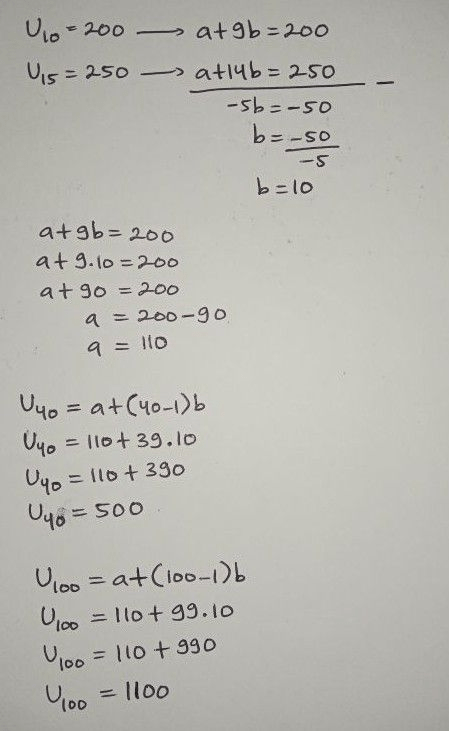 U₁₀ = 200 → a+9b = 200
U₁₅ = 250 → a+14b = 250 −
-5b = -50
b = -50
-5
b = 10
a+9b = 200
a+9.10 = 200
a+90 = 200
a = 200-90
a = 110
U₄₀ = a+(40-1)b
U₄₀ = 110+39.10
U₄₀ = 110+390
U₄₀ = 500
U₁₀₀ = a+(100-1)b
U₁₀₀ = 110+99.10
U₁₀₀ = 110+990
U₁₀₀ = 1100